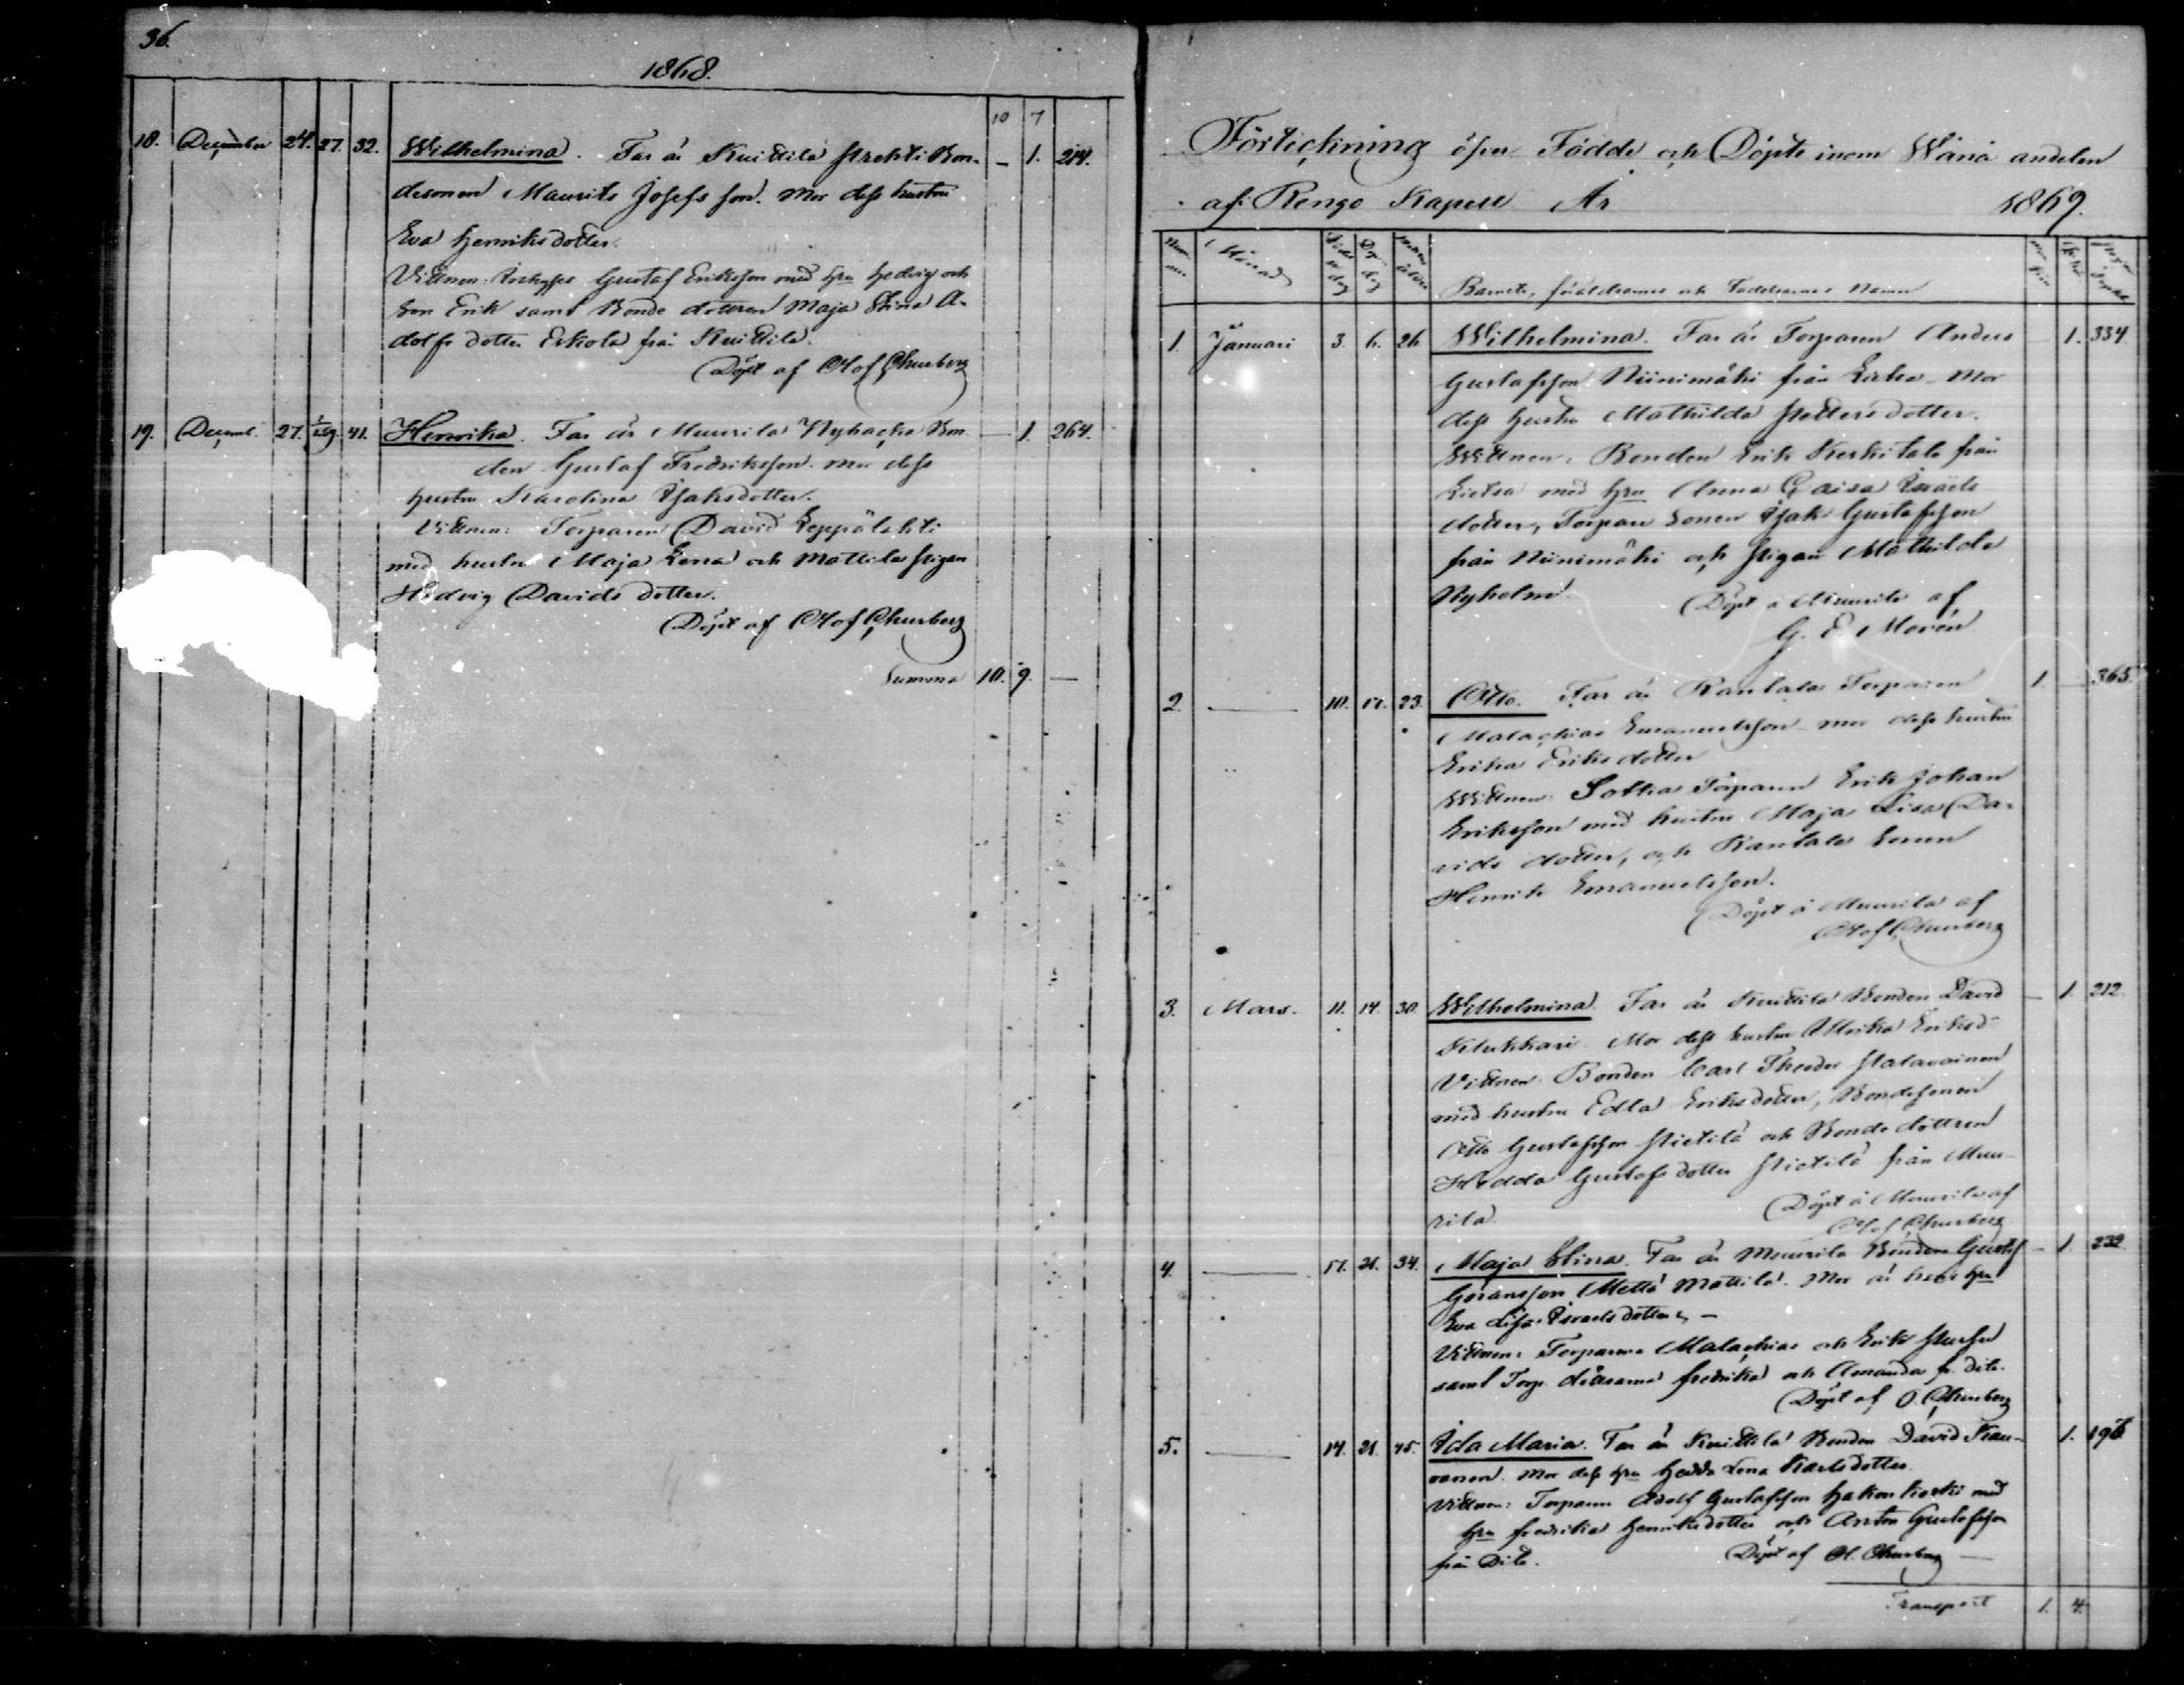 36.
1868.
10 7
18. December 24. 27. 32. Wilhelmina. Far är Kuittila Prekti Bon- — 1. 214.
desonen Maurits Josefs son. Mor dess hustru
Eva Henriksdotter.
Vittnen: Gustaf Eriksson med hru Hedvig och
Son Erik samt Bonde dottren Maja Stina A-
dolfs dotter Eskola från Kuittila.
Döpt af Olof Churberg
19. Decemb. 27. 1/29. 41. Henrika. Far är Muurila Nybacka Bon- — 1. 264.
den Gustaf Fredriksson. mor dess
hustru Karolina Isaksdotter.
Vittnen: Torparen David Leppälahti
med hustru Maja Lena och Mattila pigan
Hedvig Davids dotter.
Döpt af Olof Churberg
Summa 10. 9. —
Förteckning öfver Födde och Döpte inom Wånå andelen
af Rengo Kapell År 1869.
Månad
Barnets, föräldrarnes och Faddrarnes Namn
1. Januari 3. 6. 26 Wilhelmina. Far är Torparen Anders 1. 334.
Gustafsson Niinimäki från Lietsa - Mor
dess hustru Mathilda Petters dotter.
Wittnen: Bonden Erik Keskitalo från
Lietsa med hru Anna Caisa Israels
dotter, Torpare Sonen Isak Gustafsson
från Niinimäki och pigan Mathilda
Nyholm. Döpt å Muurila af
G. E. Morén
2. — 10. 17. 23. Otto. Far är Rantala Torparen 1. — 365.
Malachias Emanuelsson - mor dess hustru
Erika Eriks dotter
Wittnen: Sottka Torparen Erik Johan
Eriksson med hustru Maja Lisa Da-
vids dotter, och Rantala Sonen
Henrik Emanuelsson.
Döpt å Muurila af
Olof Churberg
3. Mars. 11. 14. 30. Wilhelmina. Far är Kuittila Bonden David — 1. 212.
Klukkari. Mor dess hustru Ulrika Eriksd.
Vittnen: Bonden Carl Theodor
med hustru Edla Eriksdotter, Bondesonen
Otto Gustafsson Pietilä och Bonde dottren
Hedda Gustafs dotter Pietilä från Muu-
rila. Döpt å Muurila af
Olof Churberg
4. — 17. 21. 34. Maja Stina. Far är Muurila Bonden Gustaf — 1. 232.
Göransson Mattila. Mor är hans hru
Eva Lisa Israels dotter. —
Vittnen: Torparne Malachias och Erik
samt Torp. Fredrika och Amanda fr. dito.
Döpt af O. Churberg
5. — 14. 21. 45. Ida Maria. Far är Kuittila Bonden David 1. 196
Mor dess hru Hedda Lena Karls dotter.
Vittnen: Torparen Adolf Gustafsson Hakon koski med
hru Fredrika Henriksdotter och Anton Gustafsson
från Dito. Döpt af O. Churberg —
Transport 1. 4.